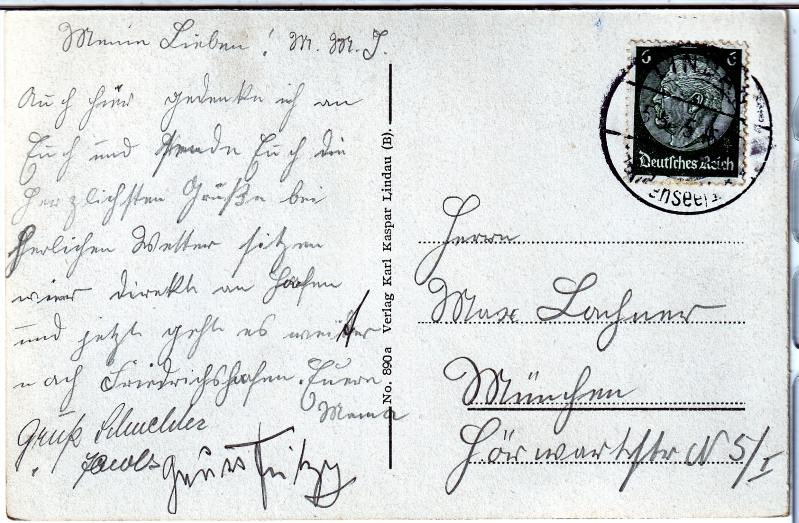 Meine Lieben! M. M. J.
Auch hier gedenke ich an
Euch und sende Euch die
herzlichsten Grüße bei
herlichen Wetter sitzen
wier direkt an Hafen
und jetzt geht es weiter
nach Friedrichshafen. Euere
Mama
Gruß
Jacob
Gruß Fritz
No. 890a Verlag Karl Kaspar Lindau (B).
6 6
Deutsches Reich
LINDAU
ensee
Herrn
Max Lachner
München
Hörwarthstr N 5/I